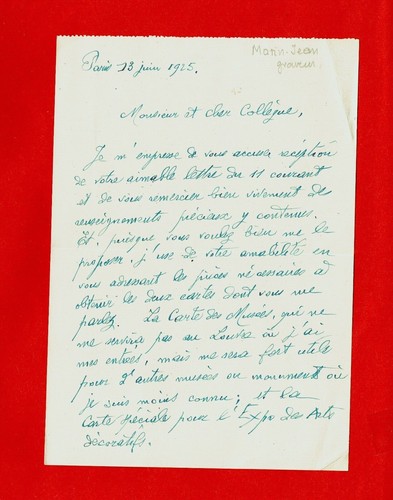 Paris 13 juin 1925.
Marin-Jean
graveur
Monsieur et cher Collègue,
Je m'empresse de vous accuser réception
de votre aimable lettre du 11 courant
et de vous remercier bien vivement des
renseignements précieux y contenus.
Et, puisque vous voulez bien me le
proposer, j'use de votre amabilité en
vous adressant les pièces nécessaires à
obtenir les deux cartes dont vous me
parlez. La Carte des Musées, qui ne
me servira pas au Louvre où j'ai
mes entrées, mais me sera fort utile
pour d'autres musées ou monuments où
je suis moins connu; et la
Carte spéciale pour l'Expo des Arts
décoratifs.